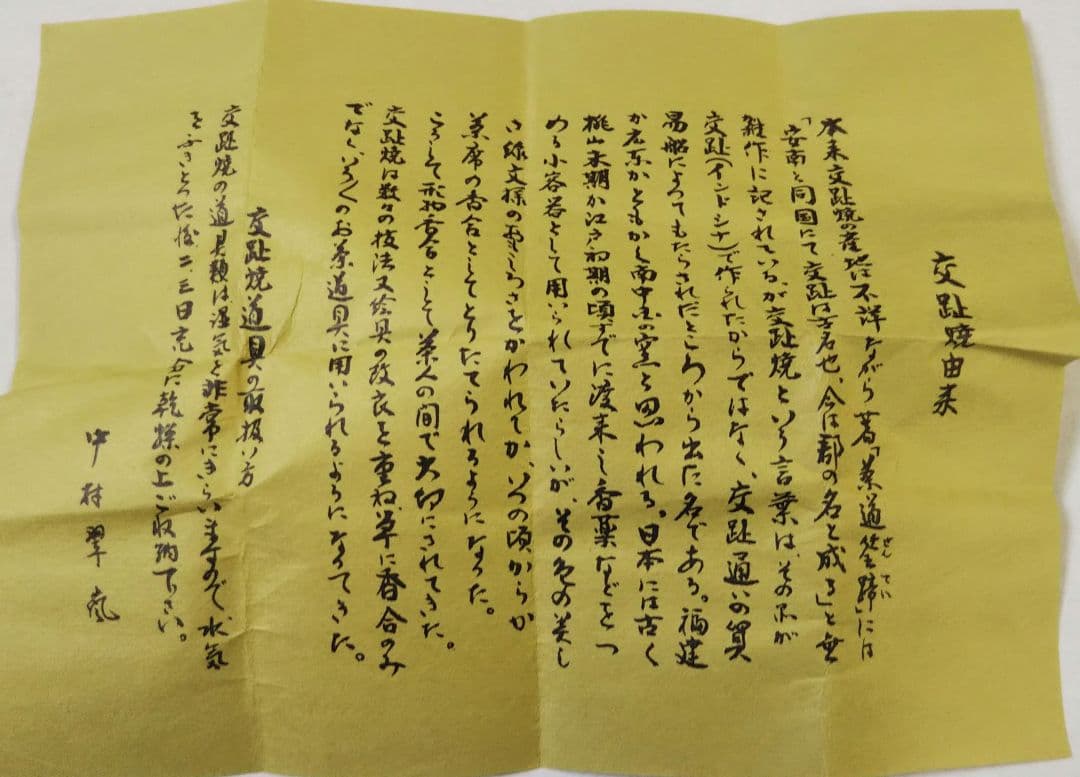 交趾焼由来
本来交趾焼の産地は不詳ながら著「茶道筌蹄」には
せんてい
「安南と同国にて交趾は古名也、今は郡の名と成る」と無
雑作に記されているが交趾焼という言葉は、その品が
交趾(インドシナ)で作られたからではなく、交趾通いの貿
易船によってもたらされたところから出た名である。福建
か広東かともかく南中国の窯と思われる。日本には古く
桃山末期か江戸初期の頃すでに渡来し香薬などをつ
める小容器として用いられていたらしいが、その色の美し
さ、緑文様の面しろさをかわれてか、いつの頃からか
茶席の香合としてとりたてられるようになった。
こうして形物香合として茶人の間で大切にされてきた。
交趾焼は数々の技法又絵具の改良を重ね、単に香合のみ
でなく、いろくのお茶道具に用いられるようになってきた。
交趾焼道具の取扱い方
交趾焼の道具類は湿気を非常にきらいますので、水気
をふきとった後二、三日充分に乾燥の上ご収納下さい。
中村翠嵐